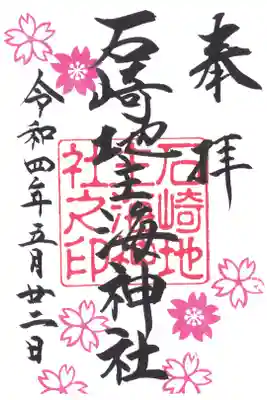 奉拝
石崎地主海神社
令和四年五月廿二日
石崎地
主海神
社之印